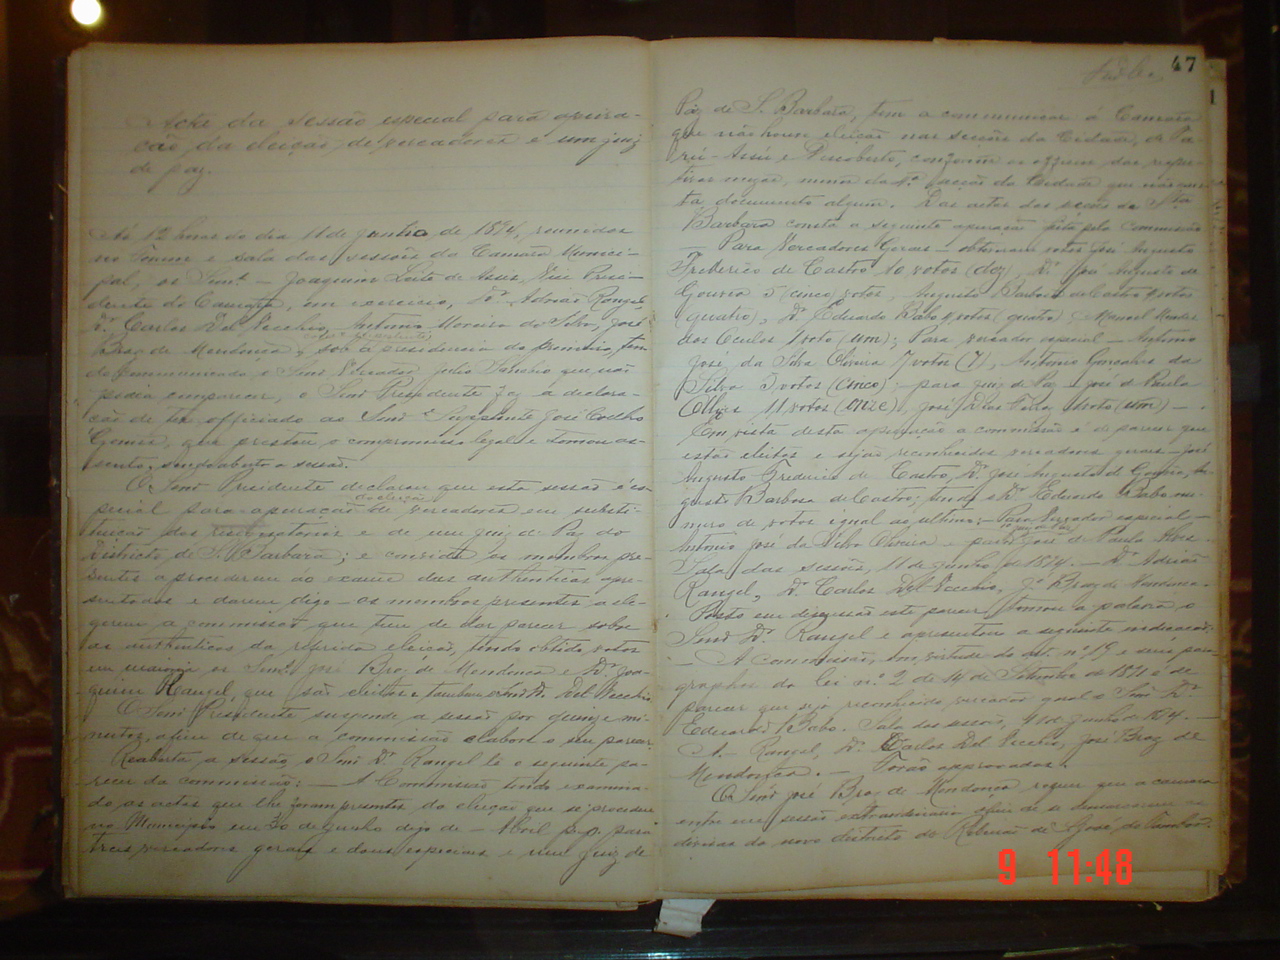 Acta da sessão especial para apura-
ção da eleição de vereadores e um juiz
de paz.
Às 12 horas do dia 11 de Junho de 1894, reunidos
no Forum e sala das sessões da Camara Munici-
pal, os Snrs. Joaquim Leite de Assis, Vice Presi-
dente da Camara, em exercicio, Dr. Adrião Rangel,
Dr. Carlos Del Vecchio, Antonio Moreira da Silva, José
Braz de Mendonça, sob a presidencia do primeiro, tem
do communicado o Snr. Vereador Julio que não
podia comparecer, o Snr. Presidente faz a declara-
ção de ter officiado ao Snr. Supplente José Coelho
Gomes, que prestou o compromisso legal e tomou as-
sento, sendo aberta a sessão.
O Snr. Presidente declarou que esta sessão é es-
da eleição
pecial para apuração de vereadores em substi-
tuição dos e de um juiz de Paz do
districto de S. Barbara; e convida os membros pre-
sentes a procederem ao exame das authenticas apre-
sentadas e darem digo — os membros presentes a ele-
gerem a commissão que tem de dar parecer sobre
as authenticas da referida eleição, tendo obtido votos
em maioria os Snrs. José Braz de Mendonça e Dr. Joa-
quim Rangel, que são eleitos e tambem o Snr. Dr. Del Vecchio
O Snr. Presidente suspende a sessão por quinze mi-
nutos, afim de que a commissão elabore o seu parecer.
Reaberta a sessão, o Snr. Dr. Rangel lê o seguinte pa-
recer da commissão: — A Commissão tendo examina-
do as actas que lhe foram presentes da eleição que se procedeu
no Municipio em 30 de Junho digo de — Abril p.p. para
tres vereadores geraes e dous especiaes e um juiz de
47
Paz de S. Barbara, tem a communicar á Camara
que não houve eleição nas secções da Cidade, de Pa
rú-Assú e Descoberto, conforme os officios das respec-
tivas mezas, menos da 4ª secção da Cidade que não
documento algum. Das actas das secções de Sta.
Barbara consta a seguinte apuração feita pela commissão
— Para Vereadores Geraes — obtiveram votos José Augusto
Frederico de Castro 10 votos (dez), Dr. José Augusto de
Gouvea 5 (cinco) votos, Augusto Barbosa de Castro 4 votos
(quatro), Dr. Eduardo Babo 4 votos (quatro), Manoel Mendes
dos 1 voto (um); Para vereador especial — Antonio
José da Silva Oliveira 7 votos (7), Antonio Gonçalves da
Silva 5 votos (cinco); para juiz de Paz — José de Paula
Alves 11 votos (onze), José Dias 1 voto (um) —.
Em vista desta apuração a commissão é de parecer que
estão eleitos e sejão reconhecidos vereadores geraes — José
Augusto Frederico de Castro, Dr. José Augusto de Gouvea, Au-
gusto Barbosa de Castro; tendo o Dr. Eduardo Babo nu-
mero de votos igual ao ultimo; — Para Vereador especial —
juiz de Paz
Antonio José da Silva Oliveira e para José de Paula Alves
Sala das sessões, 11 de Junho de 1894. — Dr. Adrião
Rangel, Dr. Carlos Del Vecchio, José Braz de Mendonça.
Posto em discussão este parecer tomou a palavra o
Snr. Dr. Rangel e apresentou a seguinte indicação:
— A commissão, em virtude do art. nº 19 e seus para-
graphos da lei nº 2 de 14 de Setembro de 1891 é de
parecer que seja reconhecido vereador geral o Snr. Dr.
Eduardo Babo. Sala das sessões, 11 de Junho de 1894. —
A. Rangel, Dr. Carlos Del Vecchio, José Braz de
Mendonça. — Forão approvados.
O Snr. José Braz de Mendonça requer que a camara
uma sessão extraordinaria afim de se as
divisas do novo districto de Ribeirão de S. José do
9 11:48